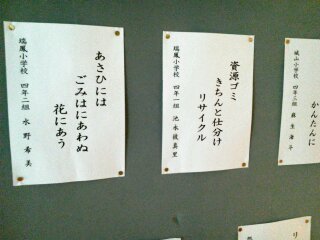 あさひには
ごみはにあわぬ
花にあう
瑞鳳小学校 四年二組 水野希美
資源ゴミ
きちんと仕分け
リサイクル
瑞鳳小学校 四年一組 池水映真里
かんたんに
城山小学校 四年
リ